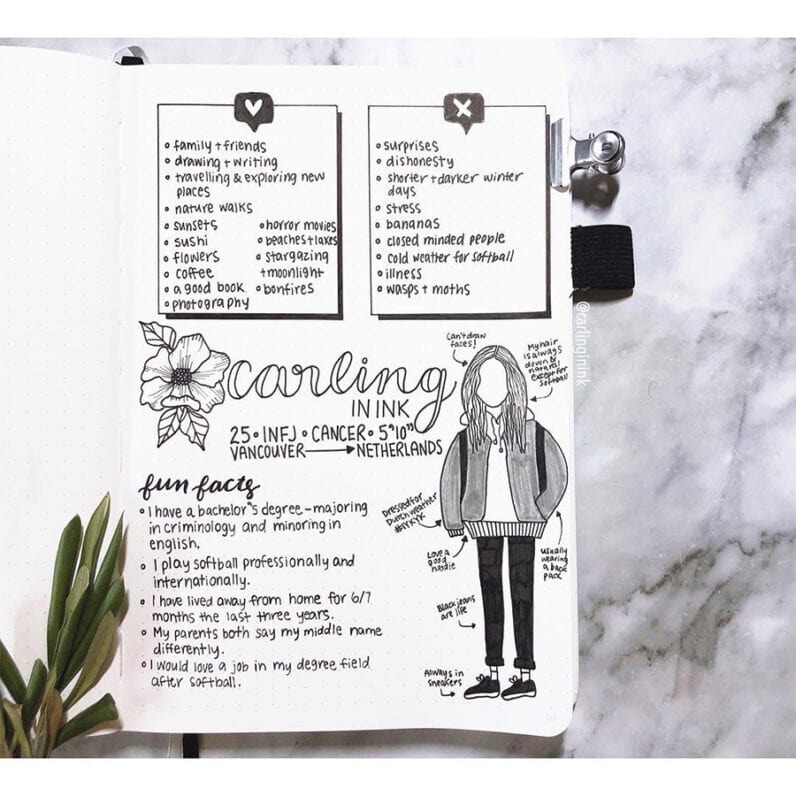 • family + friends
• drawing + writing
• travelling & exploring new
places
• nature walks
• sunsets
• sushi
• flowers
• coffee
• a good book
• photography
• horror movies
• beaches + lakes
• stargazing
+ moonlight
• bonfires
• surprises
• dishonesty
• shorter + darker winter
days
• stress
• bananas
• closed minded people
• cold weather for softball
• illness
• wasps + moths
@carlinginink
carling
IN INK
25 • INFJ • CANCER • 5"10"
VANCOUVER → NETHERLANDS
fun facts
• I have a bachelor"s degree - majoring
in criminology and minoring in
english.
• I play softball professionally and
internationally.
• I have lived away from home for 6/7
months the last three years.
• My parents both say my middle name
differently.
• I would love a job in my degree field
after softball.
Can't draw
faces!
My hair
is always
down &
natural
except for
softball
Dressed for
Dutch weather
#IYKYK
Love a
good
hoodie
usually
wearing
a back
pack
Black jeans
are life
Always in
sneakers